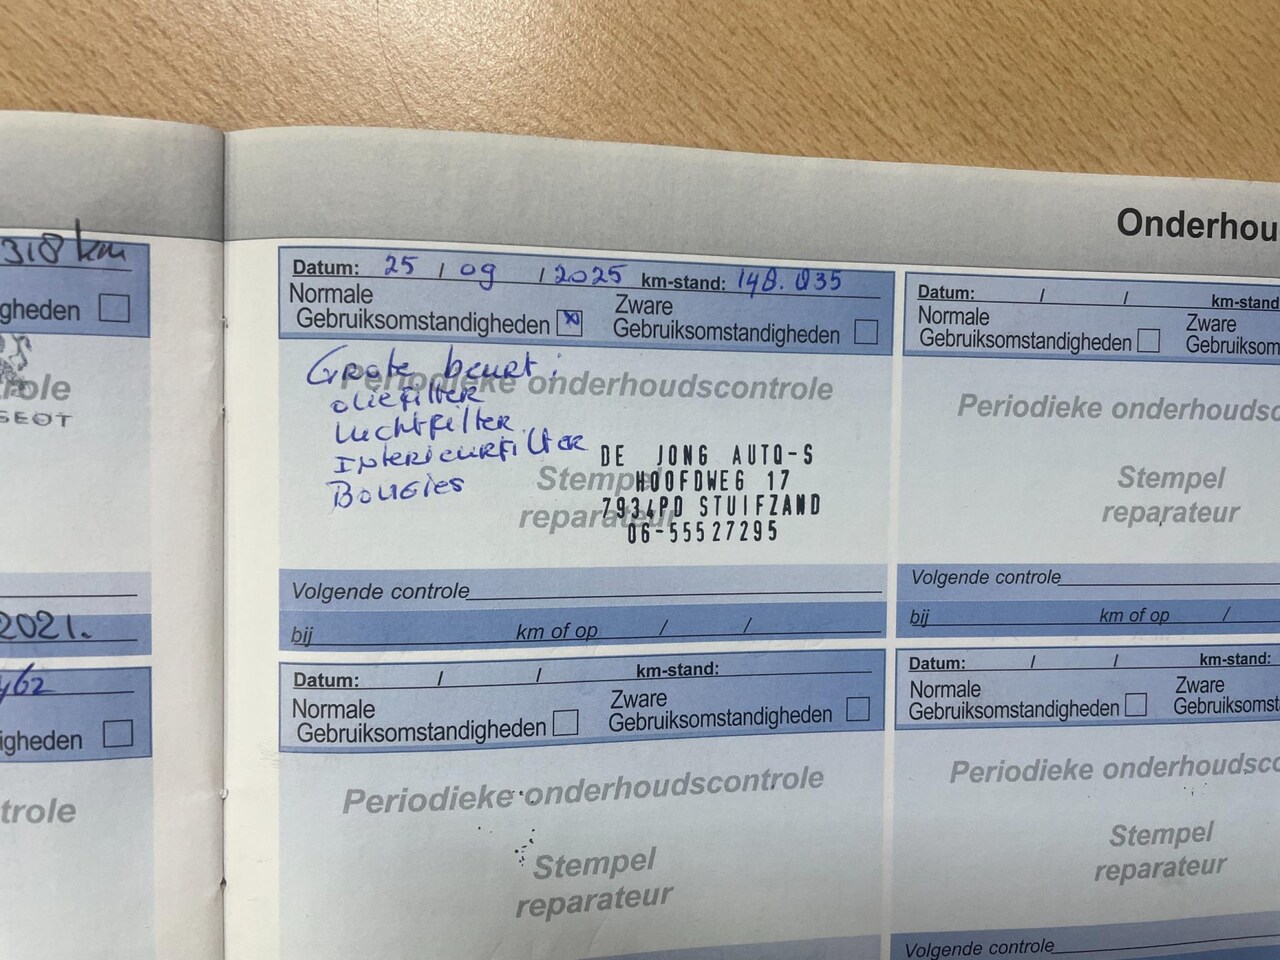 318 km
gheden
role
SEOT
2021.
462
igheden
trole
Onderhou
Datum: 25 / 09 / 2025 km-stand: 148.035
Normale
Gebruiksomstandigheden
Zware
Gebruiksomstandigheden
Grote beurt:
Periodieke onderhoudscontrole
oliefilter
luchtfilter
Interieurfilter
Bougies
Stempel
reparateur
DE JONG AUTO-S
HOOFDWEG 17
7934PD STUIFZAND
06-55527295
Volgende controle
bij km of op / /
Datum: / / km-stand:
Normale
Gebruiksomstandigheden
Zware
Gebruiksomstandigheden
Periodieke onderhoudscontrole
Stempel
reparateur
Datum: / / km-stand
Normale
Gebruiksomstandigheden
Zware
Gebruiksom
Periodieke onderhoudsc
Stempel
reparateur
Volgende controle
bij km of op /
Datum: / / km-stand:
Normale
Gebruiksomstandigheden
Zware
Gebruiksomst
Periodieke onderhoudsc
Stempel
reparateur
Volgende controle